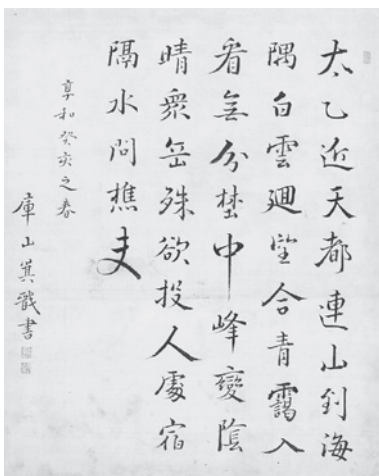 太乙近天都連山到海
隅白雲廻望合青靄入
看無分埜中峰變陰
晴衆壑殊欲投人處宿
隔水問樵夫
享和癸亥之春
庫山書